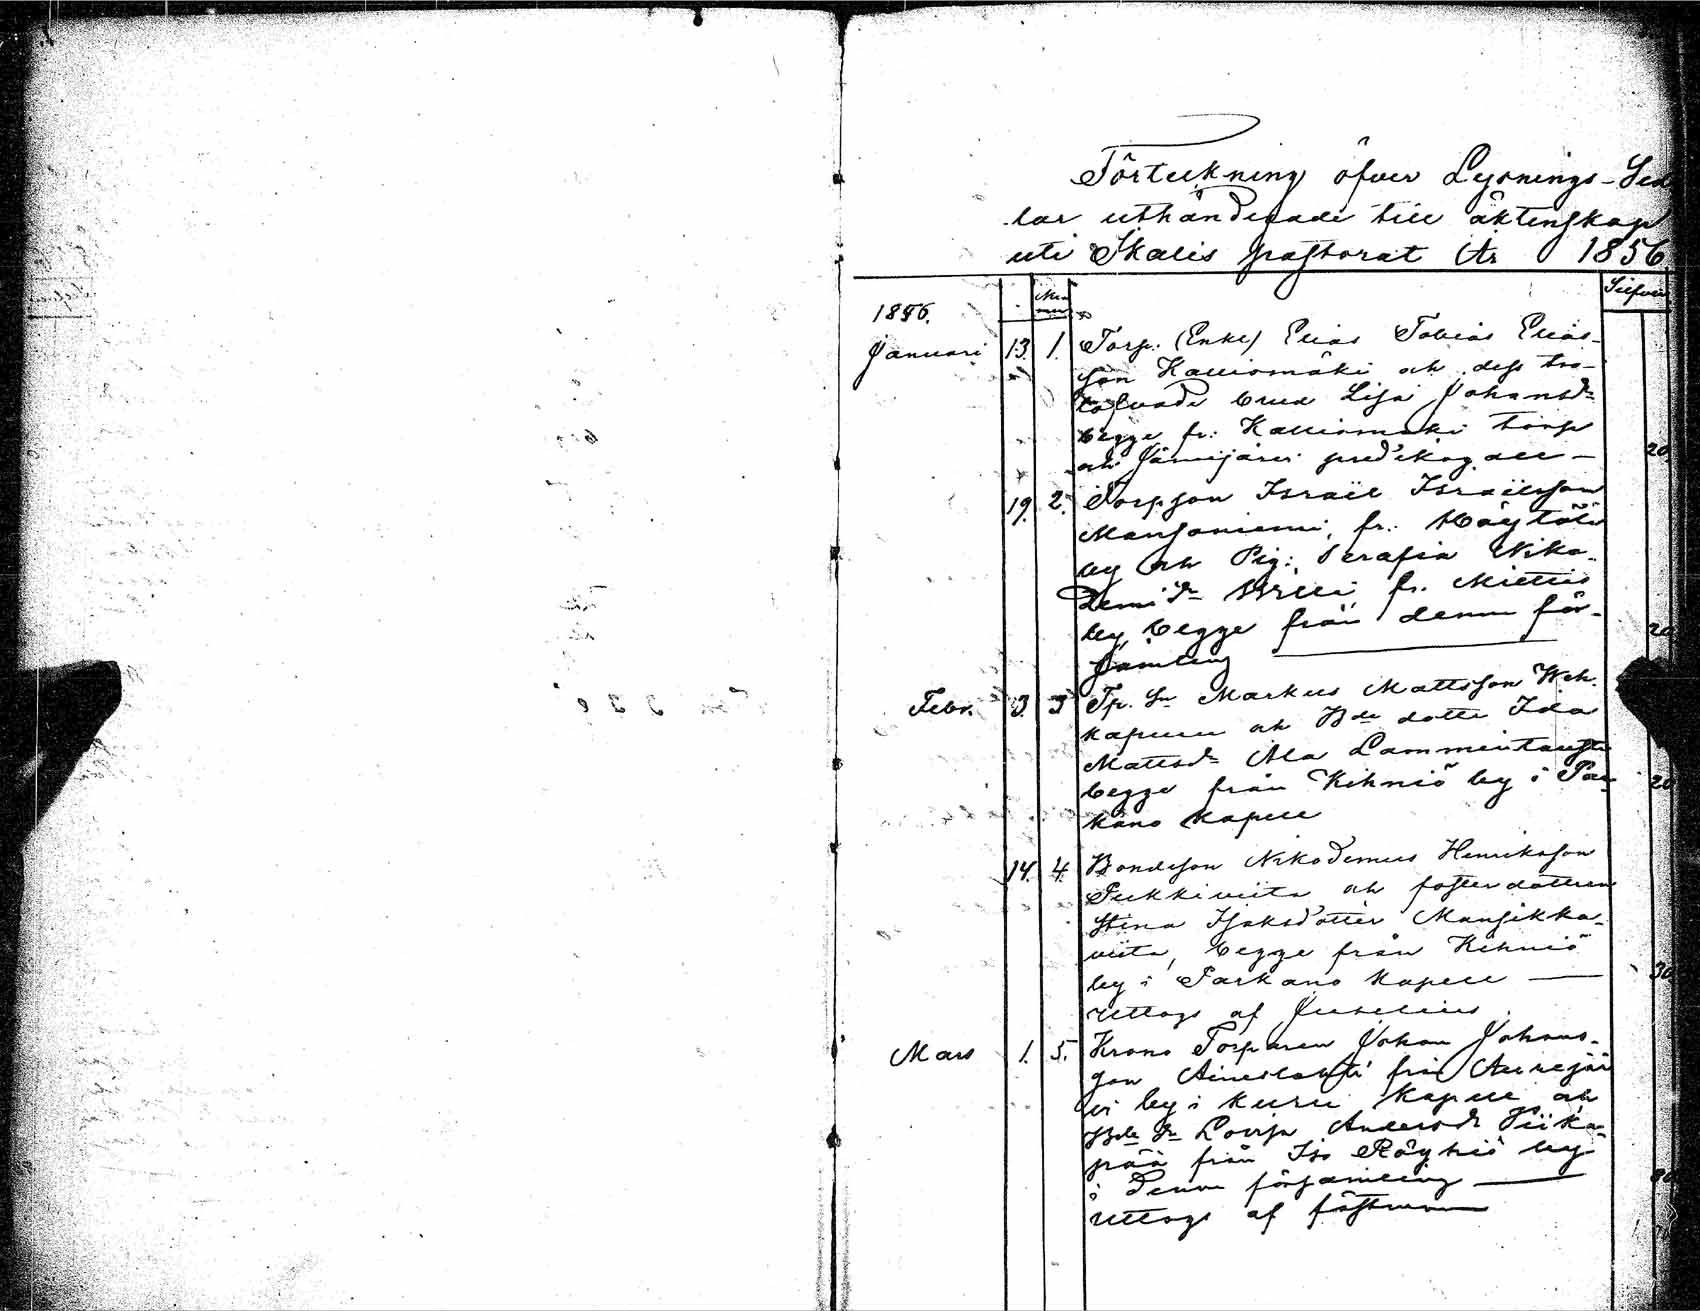 Förteckning öfver Lysnings-Sed
lar uthändigade till äktenskap
uti Ikalis pastorat År 1856
Silfver
1856.
Num
mer
Januari 13. 1. Torp. (Enkl) Elias Tobias Elias-
son Kalliomäki och dess tro-
lofvade brud Lisa Johansdr
begge fr. Kalliomäki torp
och Jämijärvi predikog.all — 20
19. 2. Torpson Israël Israëlsson
Mansoniemi, fr. Höytölä
by och Pig: Serafia Niko-
demidr fr. Miettis
by, begge från denna för-
samling — 20
Febr. 3. 3 Tp. Sn Markus Mattsson Weh-
kapuu och Bde dotter Ida
Mattsdr Ala Lammentausta
begge från Kihniö by i Par-
kano Kapell 20
14. 4. Bondeson Nikodemus Henriksson
Pukkiviita och fosterdottren
Stina Isaksdotter Mansikka-
viita, begge från Kihniö
by i Parkano Kapell — 30
uttogs af Juselius.
Mars 1. 5. Krono Torparen Johan Johans-
son från Aurejär
vi by i Kuru Kapell och
Bde dr Lovisa Andersdr Viika-
pää från Iso Röyhiö by
i denna församling — 80
uttogs af fästman